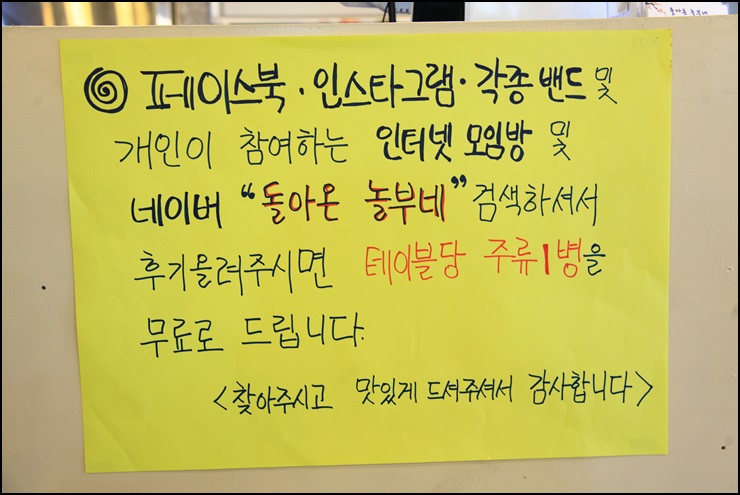 페이스북 · 인스타그램 · 각종 밴드 및
개인이 참여하는 인터넷 모임방 및
네이버 "돌아온 놀부네" 검색하셔서
후기올려주시면 테이블당 주류1병을
무료로 드립니다.
<찾아주시고 맛있게 드셔주셔서 감사합니다>